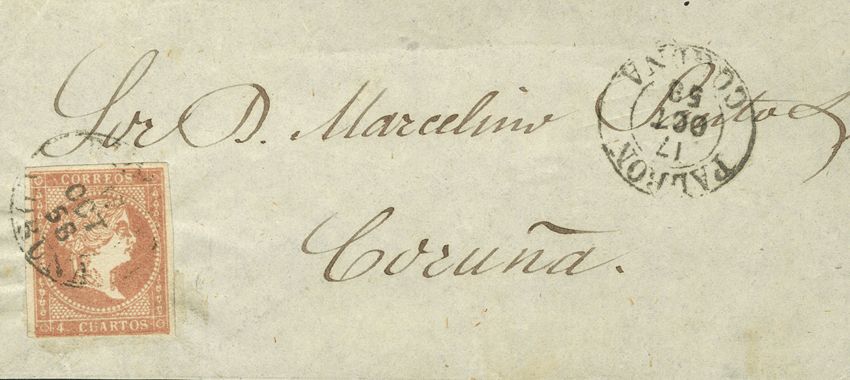 Sor D. Marcelino
Coruña.
CORREOS
4. CUARTOS
OCT
58
PADRON
17
OCT
58
CORUÑA